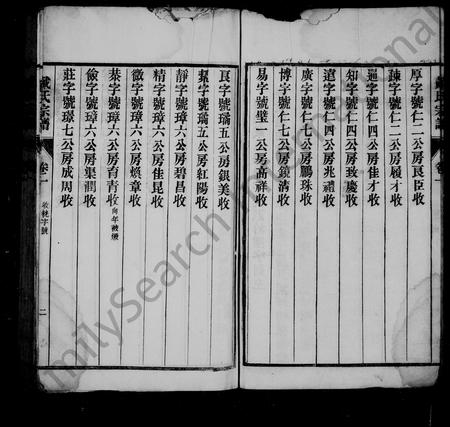 厚字號仁二公房艮臣收
疎字號仁二公房履才收
通字號仁四公房佳才收
知字號仁四公房致慶收
遠字號仁四公房兆禮收
廣字號仁六公房鵬珠收
博字號仁七公房鏡清收
易字號璧一公房高祥收
良字號瑀五公房銀美收
絜字號瑀五公房紅陽收
靜字號璋六公房碧昌收
精字號璋六公房佳昆收
微字號璋六公房煥章收
恭字號璋六公房育青收 向年被燬
儉字號璋六公房渠澗收
莊字號璟七公房成周收
戴氏宗譜
卷一
收執字號
二
FamilySearch International